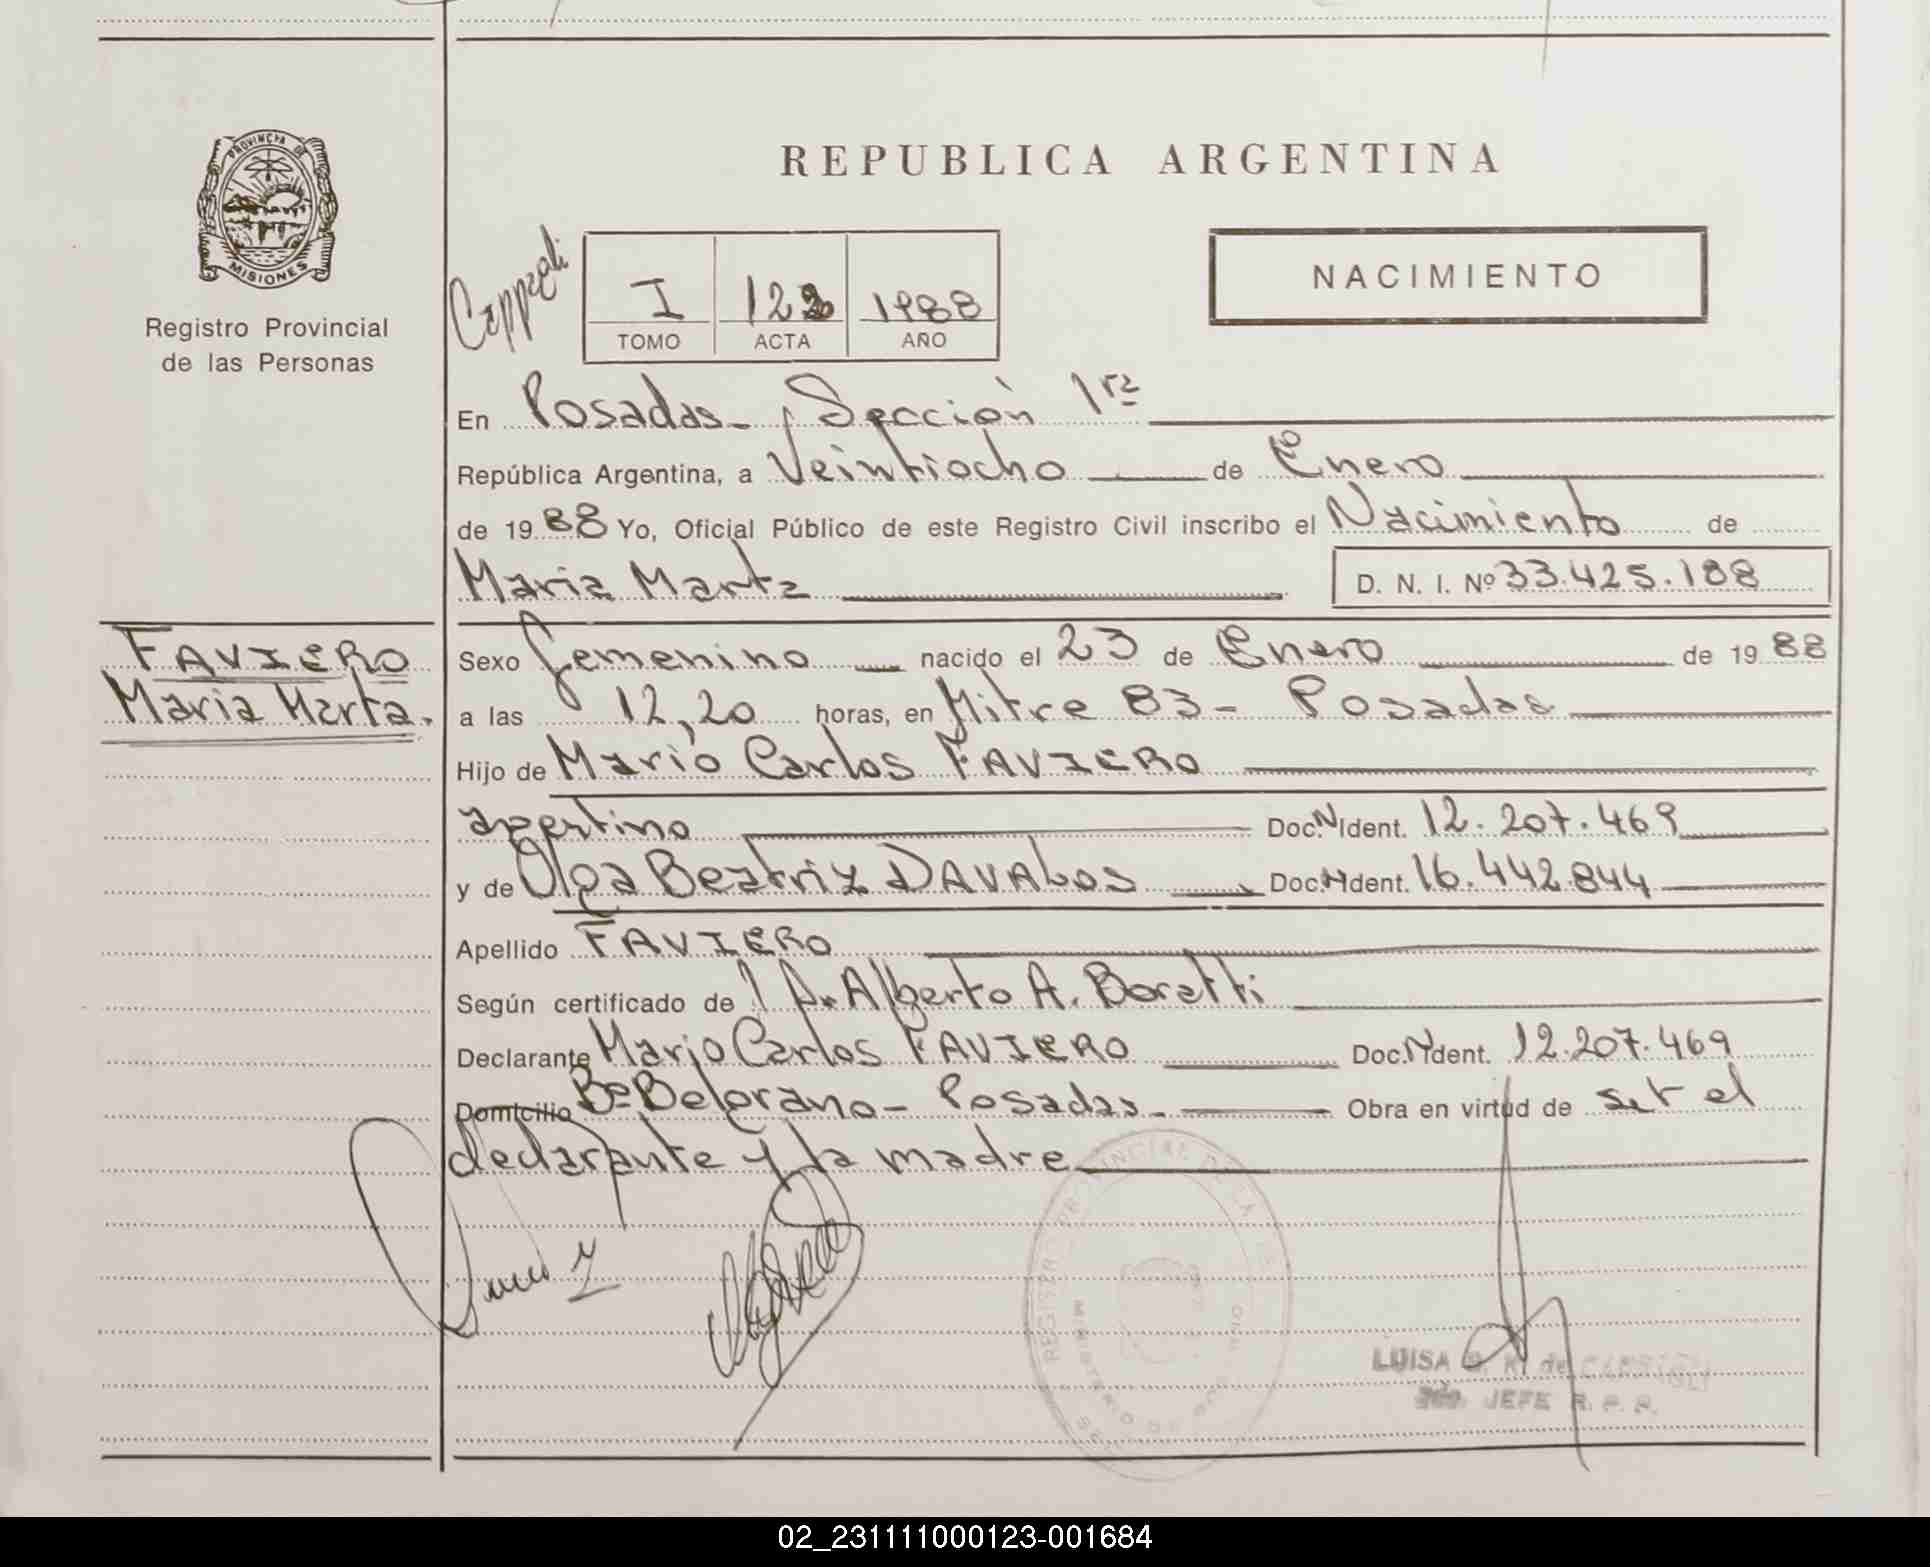 REPUBLICA ARGENTINA
PROVINCIA DE
MISIONES
Registro Provincial
de las Personas
I 122 1988
TOMO ACTA AÑO
NACIMIENTO
En Posadas - Sección 1ra
República Argentina, a Veintiocho de Enero
de 1988 Yo, Oficial Público de este Registro Civil inscribo el Nacimiento de
Maria Marta D. N. I. Nº 33.425.188
FAVIERO
Maria Marta.
Sexo Femenino nacido el 23 de Enero de 1988
a las 12,20 horas, en Mitre 83 - Posadas
Hijo de Mario Carlos FAVIERO
argentino Doc.N Ident. 12.207.469
y de Olga Beatriz DAVALOS Doc.N Ident. 16.442.844
Apellido FAVIERO
Según certificado de Dr Alberto A. Boretti
Declarante Mario Carlos FAVIERO Doc.N Ident. 12.207.469
Domicilio Bº Belgrano - Posadas - Obra en virtud de ser el
declarante y la madre
REGISTRO PROVINCIAL DE LA
MINISTERIO DE
LUISA de
JEFE R. P. P.
02_231111000123-001684